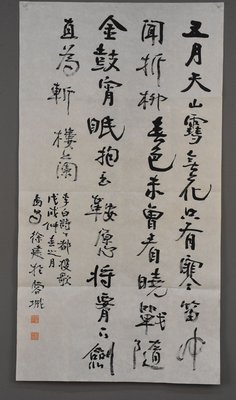 五月天山雪無花只有寒笛中
聞折柳春色未曾看曉戰隨
金鼓宵眠抱玉鞍願將腰下劍
直為斬樓蘭
李白
戊戌仲春之月
徐建於蓉城